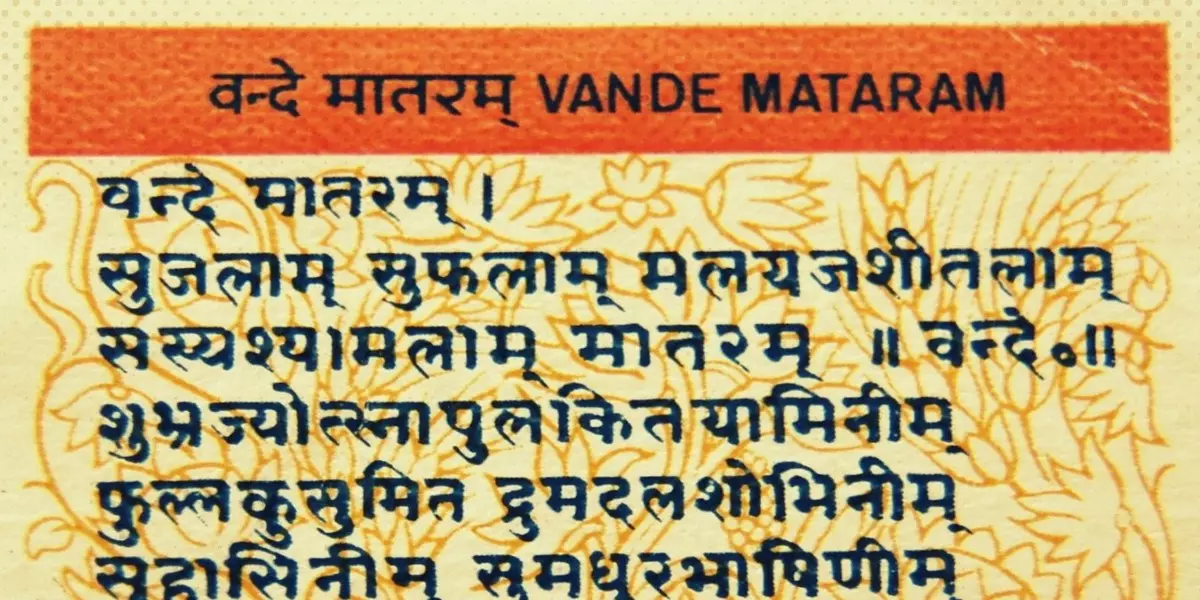 वन्दे मातरम् VANDE MATARAM
वन्दे मातरम् ।
सुजलाम् सुफलाम् मलयजशीतलाम्
सस्यश्यामलाम् मातरम् ॥ वन्दे॰॥
शुभ्रज्योत्स्नापुलकितयामिनीम्
फुल्लकुसुमित द्रुमदलशोभिनीम्
सुहासिनीम् सुमधुरभाषिणीम्